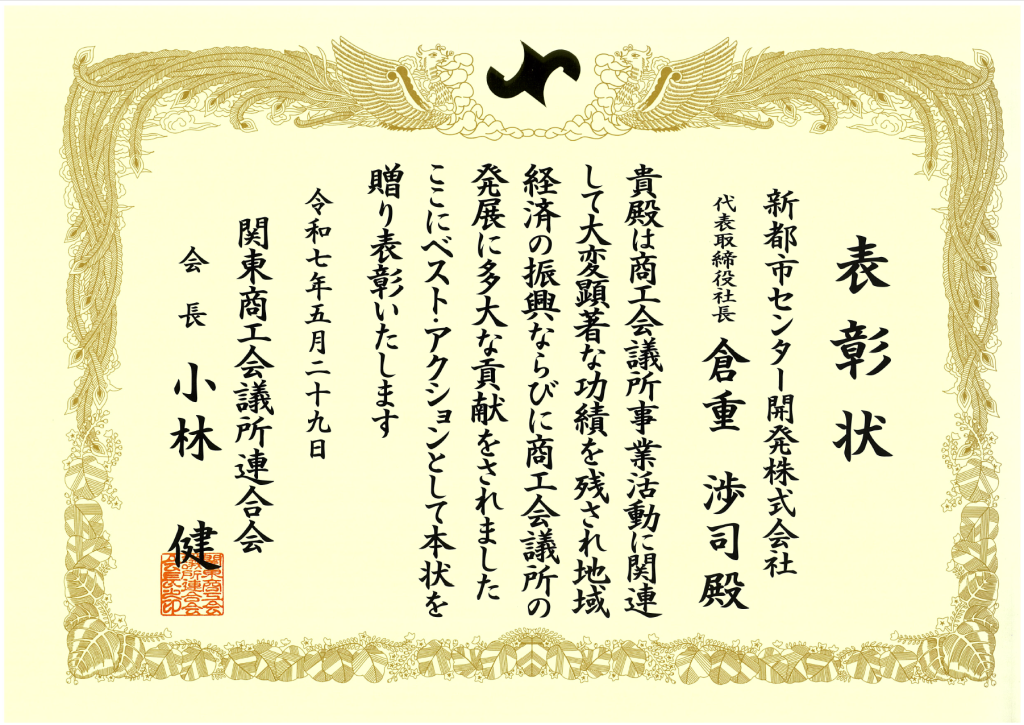 表彰状
新都市センター開発株式会社
代表取締役社長 倉重 渉司 殿
貴殿は商工会議所事業活動に関連
して大変顕著な功績を残され地域
経済の振興ならびに商工会議所の
発展に多大な貢献をされました
ここにベスト・アクションとして本状を
贈り表彰いたします
令和七年五月二十九日
関東商工会議所連合会
会長 小林 健
関東商工会
議所連合会
会長之印